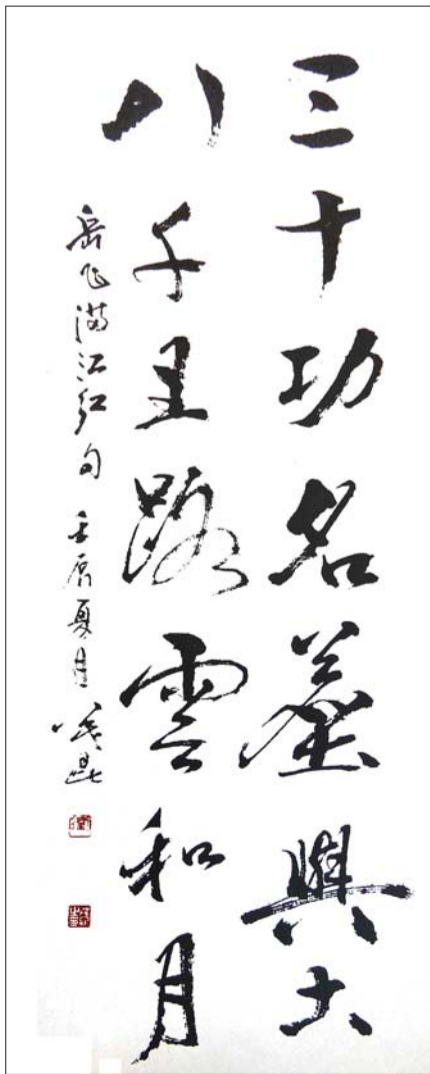 三十功名塵與土
八千里路雲和月
岳飛滿江紅句 壬辰夏月